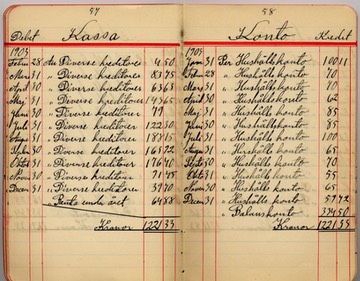 57
Debet Kassa
1903
Febr 28 An Diverse kreditorer 4 50
Mars 31 " Diverse kreditorer 83 75
April 30 " Diverse kreditorer 63 63
Maj 31 " Diverse kreditorer
Juni 30 " Diverse kreditorer 79
Juli 31 " Diverse kreditorer 122 30
31 " Diverse kreditorer
30 " Diverse kreditorer 165 72
Okt 31 " Diverse kreditorer 176 40
Nov 30 " Diverse kreditorer
Decem 31 " Diverse kreditorer
" Ränta under året 64 88
Kronor 1221 33
58
Konto Kredit
1903
Janu 31 Per Hushållskonto 100 11
Febr 28 " Hushålls konto 70
Mars 31 " Hushålls konto 70
April 30 " Hushållskonto 62
Maj 31 " Hushålls konto 85
Juni 30 " Hushålls konto 85
Juli 31 " Hushålls konto 65
31 " Hushålls konto 65
30 " Hushålls konto 70
Okt 31 " Hushålls konto 55
Novem 30 " Hushålls konto 65
Decem 31 " Hushålls konto 59 72
" Balanskonto 394 50
Kronor 1221 33